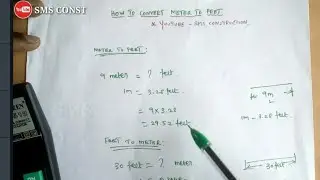 SMS CONST
HOW TO CONVERT METER TO FEET
YOUTUBE - SMS CONSTRUCTION
METER TO FEET:
9 meter = ? feet
1m = 3.28 feet
= 9 x 3.28
= 29.52 feet
9m
1m - 3.28 feet
FEET TO METER:
30 feet = ? meter
30 feet